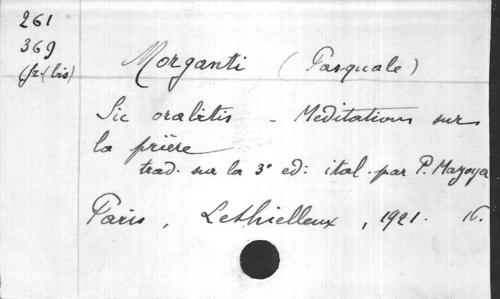 261
369
(fr. (bis)
Morganti (Pasquale)
Sic orabitis - Meditations sur
la prière
trad. sur la 3e ed: ital. par P. Mazoyer
Paris, Lethielleux, 1921. 16.